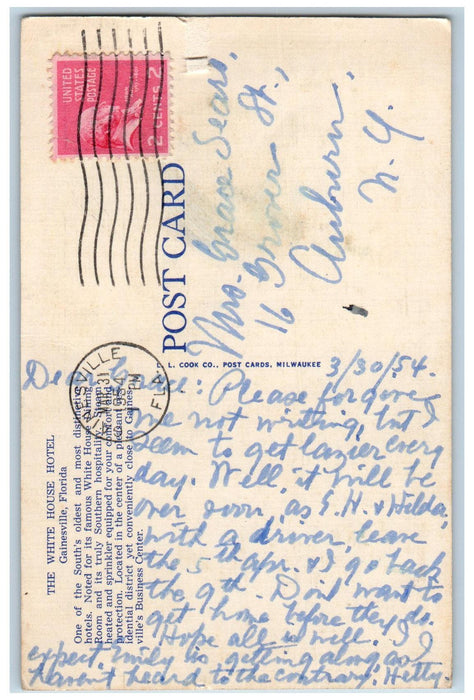 UNITED
STATES
POSTAGE
2 CENTS 2
POST CARD
Mrs. Grace Sears,
16 Grover St.,
Auburn,
N. Y.
E. L. COOK CO., POST CARDS, MILWAUKEE
GAINESVILLE
MAR 31
1954
PM
FLA.
THE WHITE HOUSE HOTEL
Gainesville, Florida
One of the South's oldest and most distinctive
hotels. Noted for its famous White House Dining
Room and its truly Southern hospitality. Steam
heated and sprinkler equipped for your comfort and
protection. Located in the center of a pleasant res-
idential district yet conveniently close to Gaines-
ville's Business Center.
3/30/54.
Dear Grace: Please forgive
me not writing, but I
seem to get lazier every
day. Well, it will be
over soon, as E. H. & Hilda,
with a driver, leave
the 5th Apr. & I go back
the 9th. Don't want to
get home before they do.
Hope all is well. I
expect Emily is getting along, as I
haven't heard to the contrary. Hetty